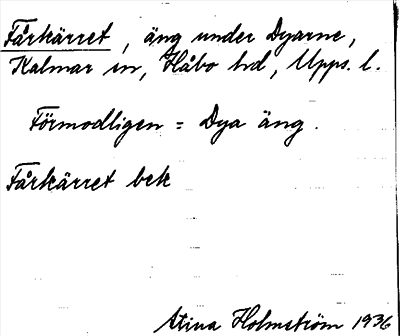 Fårkärret, äng under Dyarne,
Kalmar sn, Håbo hd, Upps. l.
Förmodligen = Dya äng.
Fårkärret bek
Stina Holmström 1936